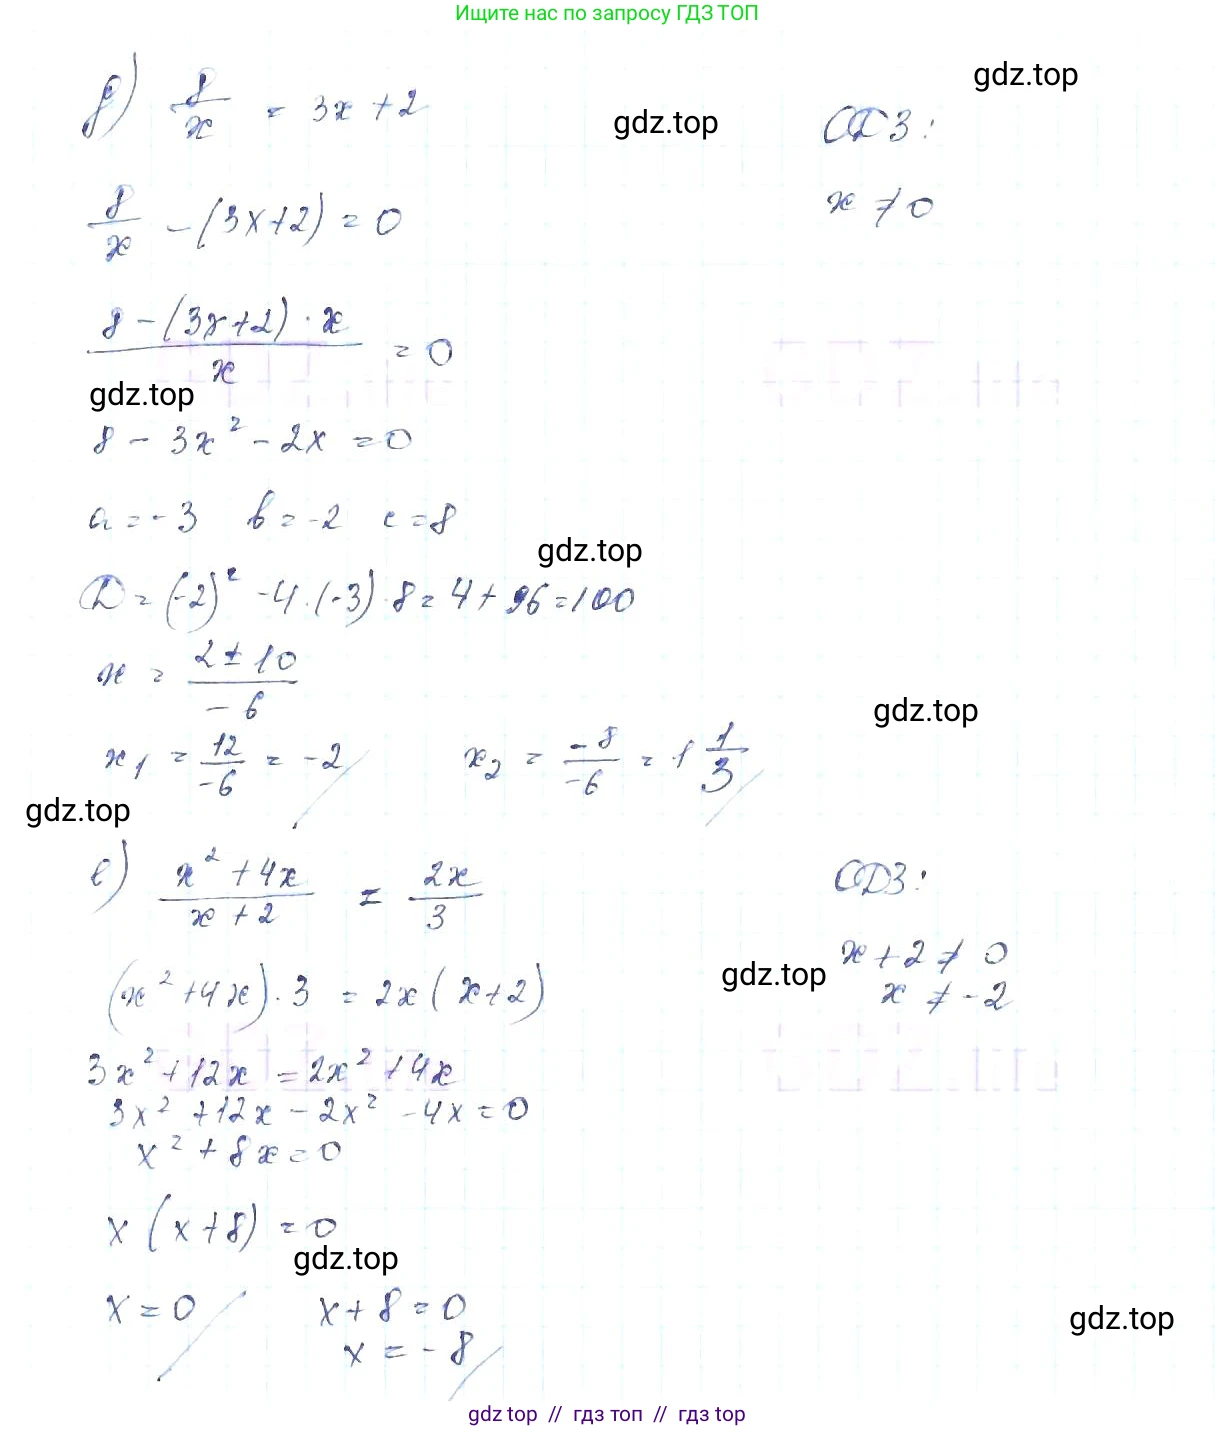 Ищите нас по запросу ГДЗ ТОП
gdz.top
д) 8/x = 3x + 2
gdz.top
ОДЗ:
8/x - (3x+2) = 0
x ≠ 0
(8 - (3x+2) · x)/x = 0
gdz.top
8 - 3x² - 2x = 0
a = -3 b = -2 c = 8
gdz.top
D = (-2)² - 4·(-3)·8 = 4 + 96 = 100
x = (2 ± 10)/-6
gdz.top
x₁ = 12/-6 = -2 x₂ = -8/-6 = 1 1/3
gdz.top
е) (x² + 4x)/(x + 2) = 2x/3
ОДЗ:
x + 2 ≠ 0
gdz.top
x ≠ -2
(x² + 4x) · 3 = 2x (x+2)
3x² + 12x = 2x² + 4x
3x² + 12x - 2x² - 4x = 0
x² + 8x = 0
x (x + 8) = 0
gdz.top
x = 0 x + 8 = 0
gdz.top
x = -8
gdz top // гдз топ // гдз top